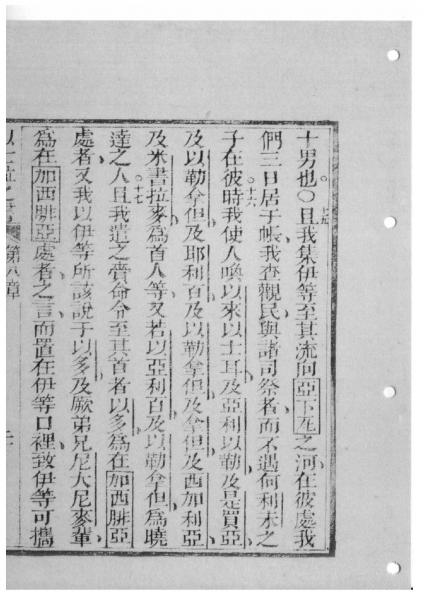 十男也○十五且我集伊等至其流向亞下瓦之河在彼處我
們三日居于帳我查觀民與諸司祭者而不遇何利未之
子十六在彼時我使人喚以來以士耳及亞利以勒及是買亞
及以勒拿但及耶利百及以勒拿但及拿但及西加利亞
及米書拉麥為首人等又若以亞利百及以勒拿但為曉
達之人十七且我遣之賫命令至其首者以多為在加西腓亞
處者又我以伊等所該說于以多及厥弟兄尼大尼麥輩
為在加西腓亞處者之言而置在伊等口裡致伊等可攜
第八章